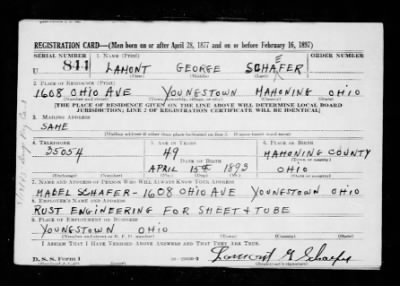 REGISTRATION CARD—(Men born on or after April 28, 1877 and on or before February 16, 1897)
SERIAL NUMBER 1. NAME (Print) ORDER NUMBER
U 844 LAMONT GEORGE SCHAFER
(First) (Middle) (Last)
2. PLACE OF RESIDENCE (Print)
1608 OHIO AVE YOUNGSTOWN MAHONING OHIO
(Number and street) (Town, township, village, or city) (County) (State)
[THE PLACE OF RESIDENCE GIVEN ON THE LINE ABOVE WILL DETERMINE LOCAL BOARD
JURISDICTION; LINE 2 OF REGISTRATION CERTIFICATE WILL BE IDENTICAL]
3. MAILING ADDRESS
SAME
[Mailing address if other than place indicated on line 2. If same insert word same]
4. TELEPHONE 5. AGE IN YEARS 6. PLACE OF BIRTH
35054 49 MAHONING COUNTY
DATE OF BIRTH (Town or county)
APRIL 15th 1893 OHIO
(Mo.) (Day) (Yr.) (State or country)
7. NAME AND ADDRESS OF PERSON WHO WILL ALWAYS KNOW YOUR ADDRESS
MABEL SCHAFER - 1608 OHIO AVE YOUNGSTOWN OHIO
8. EMPLOYER'S NAME AND ADDRESS
RUST ENGINEERING FOR SHEET & TUBE
9. PLACE OF EMPLOYMENT OR BUSINESS
YOUNGSTOWN OHIO
(Number and street or R. F. D. number) (Town) (County) (State)
I AFFIRM THAT I HAVE VERIFIED ABOVE ANSWERS AND THAT THEY ARE TRUE.
D. S. S. Form 1 Lamont G Schafer